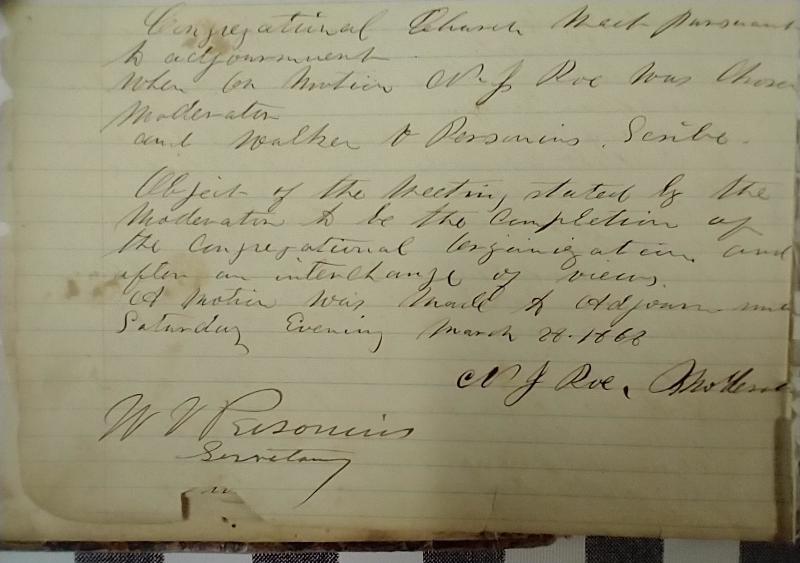 Congregational Church Meet pursuant
to adjournment
when on Motion N. J Roe was Chosen
Moderator
and Walker V Personius. Scribe.
Object of the Meeting stated by the
Moderator to be the Completion of
the Congregational Organization, and
after an interchange of views.
A Motion was Made to Adjourn
Saturday Evening March 28. 1868
N J Roe, Moderator
W V Personius
Secretary